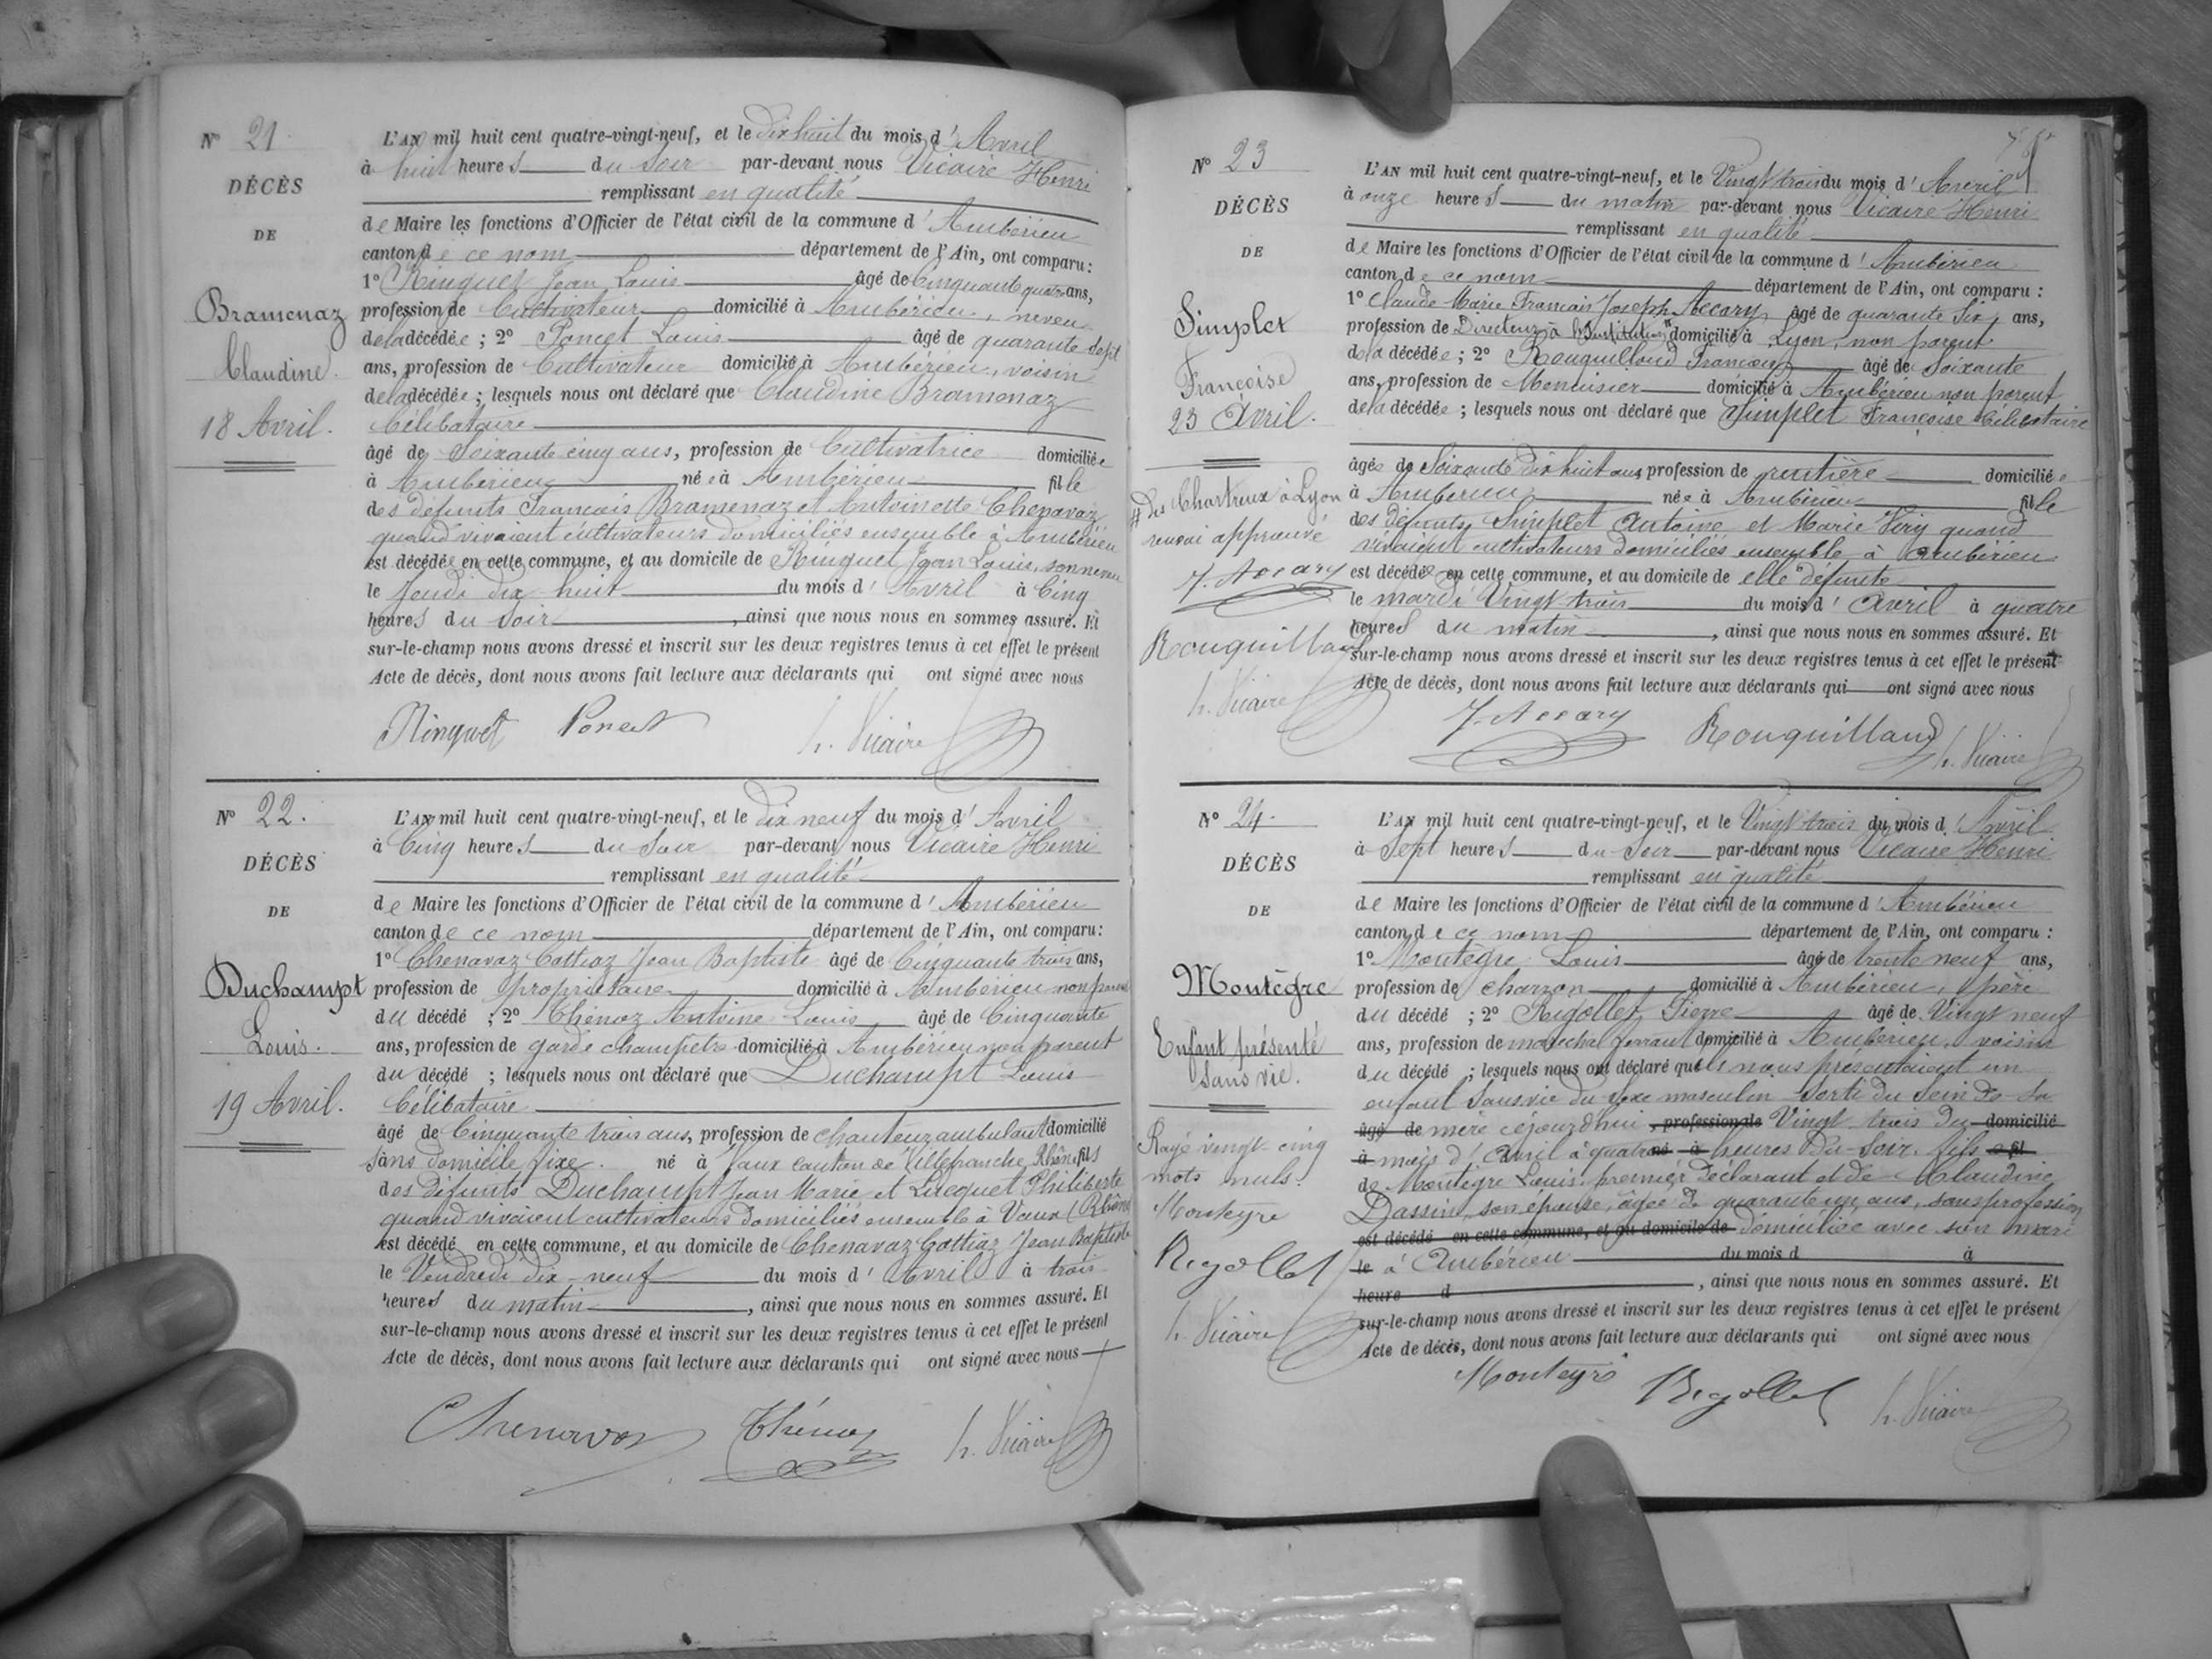 N° 21
DÉCÈS
DE
Bramenaz
Claudine.
18 Avril.
L'AN mil huit cent quatre-vingt-neuf, et le dix huit du mois d' Avril
à huit heures du Soir par-devant nous Vicaire Henri
remplissant en qualité
de Maire les fonctions d'Officier de l'état civil de la commune d' Ambérieu
canton de ce nom département de l'Ain, ont comparu :
1° Ringuet Jean Louis âgé de Cinquante quatre ans,
profession de Cultivateur domicilié à Ambérieu, neveu
de la décédée ; 2° Poncet Louis âgé de quarante sept
ans, profession de Cultivateur domicilié à Ambérieu, voisin
de la décédée ; lesquels nous ont déclaré que Claudine Bramenaz
Célibataire
âgé de Soixante cinq ans, profession de Cultivatrice domiciliée
à Ambérieu née à Ambérieu fille
des défunts Francois Bramenaz et Antoinette Chenavaz
quand vivaient cultivateurs domiciliés ensemble à Ambérieu
est décédée en cette commune, et au domicile de Ringuet Jean Louis, son neveu
le Jeudi dix huit du mois d' Avril à Cinq
heures du Soir , ainsi que nous nous en sommes assuré. Et
sur-le-champ nous avons dressé et inscrit sur les deux registres tenus à cet effet le présent
Acte de décès, dont nous avons fait lecture aux déclarants qui ont signé avec nous
Ringuet Poncet h. Vicaire
N° 22.
DÉCÈS
DE
Duchampt
Louis.
19 Avril.
L'AN mil huit cent quatre-vingt-neuf, et le dix neuf du mois d' Avril
à Cinq heures du Soir par-devant nous Vicaire Henri
remplissant en qualité
de Maire les fonctions d'Officier de l'état civil de la commune d' Ambérieu
canton de ce nom département de l'Ain, ont comparu :
1° Chenavaz Cottiaz Jean Baptiste âgé de Cinquante trois ans,
profession de propriétaire domicilié à Ambérieu non parent
du décédé ; 2° Thénoz Antoine Louis âgé de Cinquante
ans, profession de garde champetre domicilié à Ambérieu non parent
du décédé ; lesquels nous ont déclaré que Duchampt Louis
Célibataire
âgé de Cinquante trois ans, profession de chanteur ambulant domicilié
Sans domicile fixe. né à Vaux canton de Villefranche, Rhône fils
des défunts Duchampt Jean Marie et Lucquet Philiberte
quand vivaient cultivateurs domiciliés ensemble à Vaux (Rhône
est décédé en cette commune, et au domicile de Chenavaz Cottiaz Jean Baptiste
le Vendredi dix-neuf du mois d' Avril à trois
heures du matin , ainsi que nous nous en sommes assuré. Et
sur-le-champ nous avons dressé et inscrit sur les deux registres tenus à cet effet le présent
Acte de décès, dont nous avons fait lecture aux déclarants qui ont signé avec nous
Chenavaz Thénoz h. Vicaire
N° 23
DÉCÈS
DE
Simplet
Francoise
23 Avril.
# des Chartreux à Lyon
renvoi approuvé
J. Accary
Rouquilland
h. Vicaire
L'AN mil huit cent quatre-vingt-neuf, et le Vingt trois du mois d' Avril
à onze heures du matin par-devant nous Vicaire Henri
remplissant en qualité
de Maire les fonctions d'Officier de l'état civil de la commune d' Ambérieu
canton de ce nom département de l'Ain, ont comparu :
1° Claude Marie Francois Joseph Accary âgé de quarante Six ans,
profession de Directeur à l'Institution # domicilié à Lyon, non parent
de la décédée ; 2° Rouquilland Francois âgé de Soixante
ans, profession de Menuisier domicilié à Ambérieu non parent
de la décédée ; lesquels nous ont déclaré que Simplet Françoise Célibataire
âgée de Soixante dix huit ans, profession de rentière domiciliée
à Ambérieu née à Ambérieu fille
des défunts Simplet Antoine et Marie Viry quand
vivaient cultivateurs domiciliés ensemble à Ambérieu
est décédée en cette commune, et au domicile de elle défunte
le mardi Vingt trois du mois d' Avril à quatre
heures du matin , ainsi que nous nous en sommes assuré. Et
sur-le-champ nous avons dressé et inscrit sur les deux registres tenus à cet effet le présent
Acte de décès, dont nous avons fait lecture aux déclarants qui ont signé avec nous
J. Accary Rouquilland h. Vicaire
N° 24.
DÉCÈS
DE
Montègre
Enfant présenté
Sans vie.
Rayé vingt cinq
mots nuls.
Monteyre
Rigollet
h. Vicaire
L'AN mil huit cent quatre-vingt-neuf, et le Vingt trois du mois d' Avril
à Sept heures du Soir par-devant nous Vicaire Henri
remplissant en qualité
de Maire les fonctions d'Officier de l'état civil de la commune d' Ambérieu
canton de ce nom département de l'Ain, ont comparu :
1° Montègre Louis âgé de trente neuf ans,
profession de charron domicilié à Ambérieu, père
du décédé ; 2° Rigollet Pierre âgé de Vingt neuf
ans, profession de maréchal ferrant domicilié à Ambérieu, voisin
du décédé ; lesquels nous ont déclaré qu'ils nous présentaient un
enfant Sans vie du sexe masculin sorti du sein de sa
âgé de mère cejourd'hui , profession de Vingt trois du domicilié
à mois d' Avril à quatre né à heures du Soir. fils fil
de Montègre Louis premier déclarant et de Claudine
Dassin son épouse, âgée de quarante un ans, sans profession
est décédé en cette commune, et au domicile de domiciliée avec son mari
le à Ambérieu du mois d à
heure d , ainsi que nous nous en sommes assuré. Et
sur-le-champ nous avons dressé et inscrit sur les deux registres tenus à cet effet le présent
Acte de décès, dont nous avons fait lecture aux déclarants qui ont signé avec nous
Monteyre Rigollet h. Vicaire